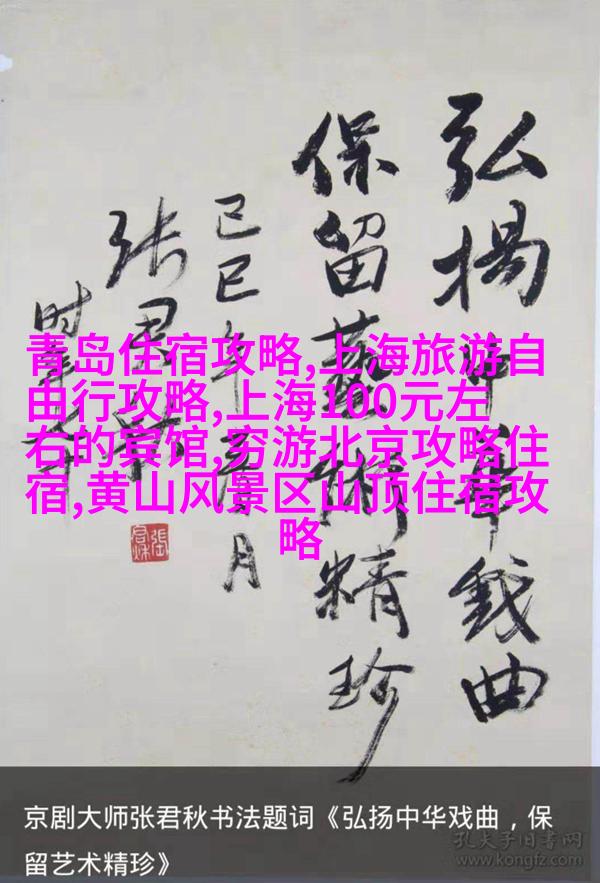 弘揚中华戏曲
保留艺术精珍
己巳年荷月
张君秋
青岛住宿攻略,上海旅游自
由行攻略,上海100元左
右的宾馆,穷游北京攻略住
宿,黄山风景区山顶住宿攻
略
京剧大师张君秋书法题词《弘扬中华戏曲，保
留艺术精珍》
孔夫子旧书网
www.kongfz.com